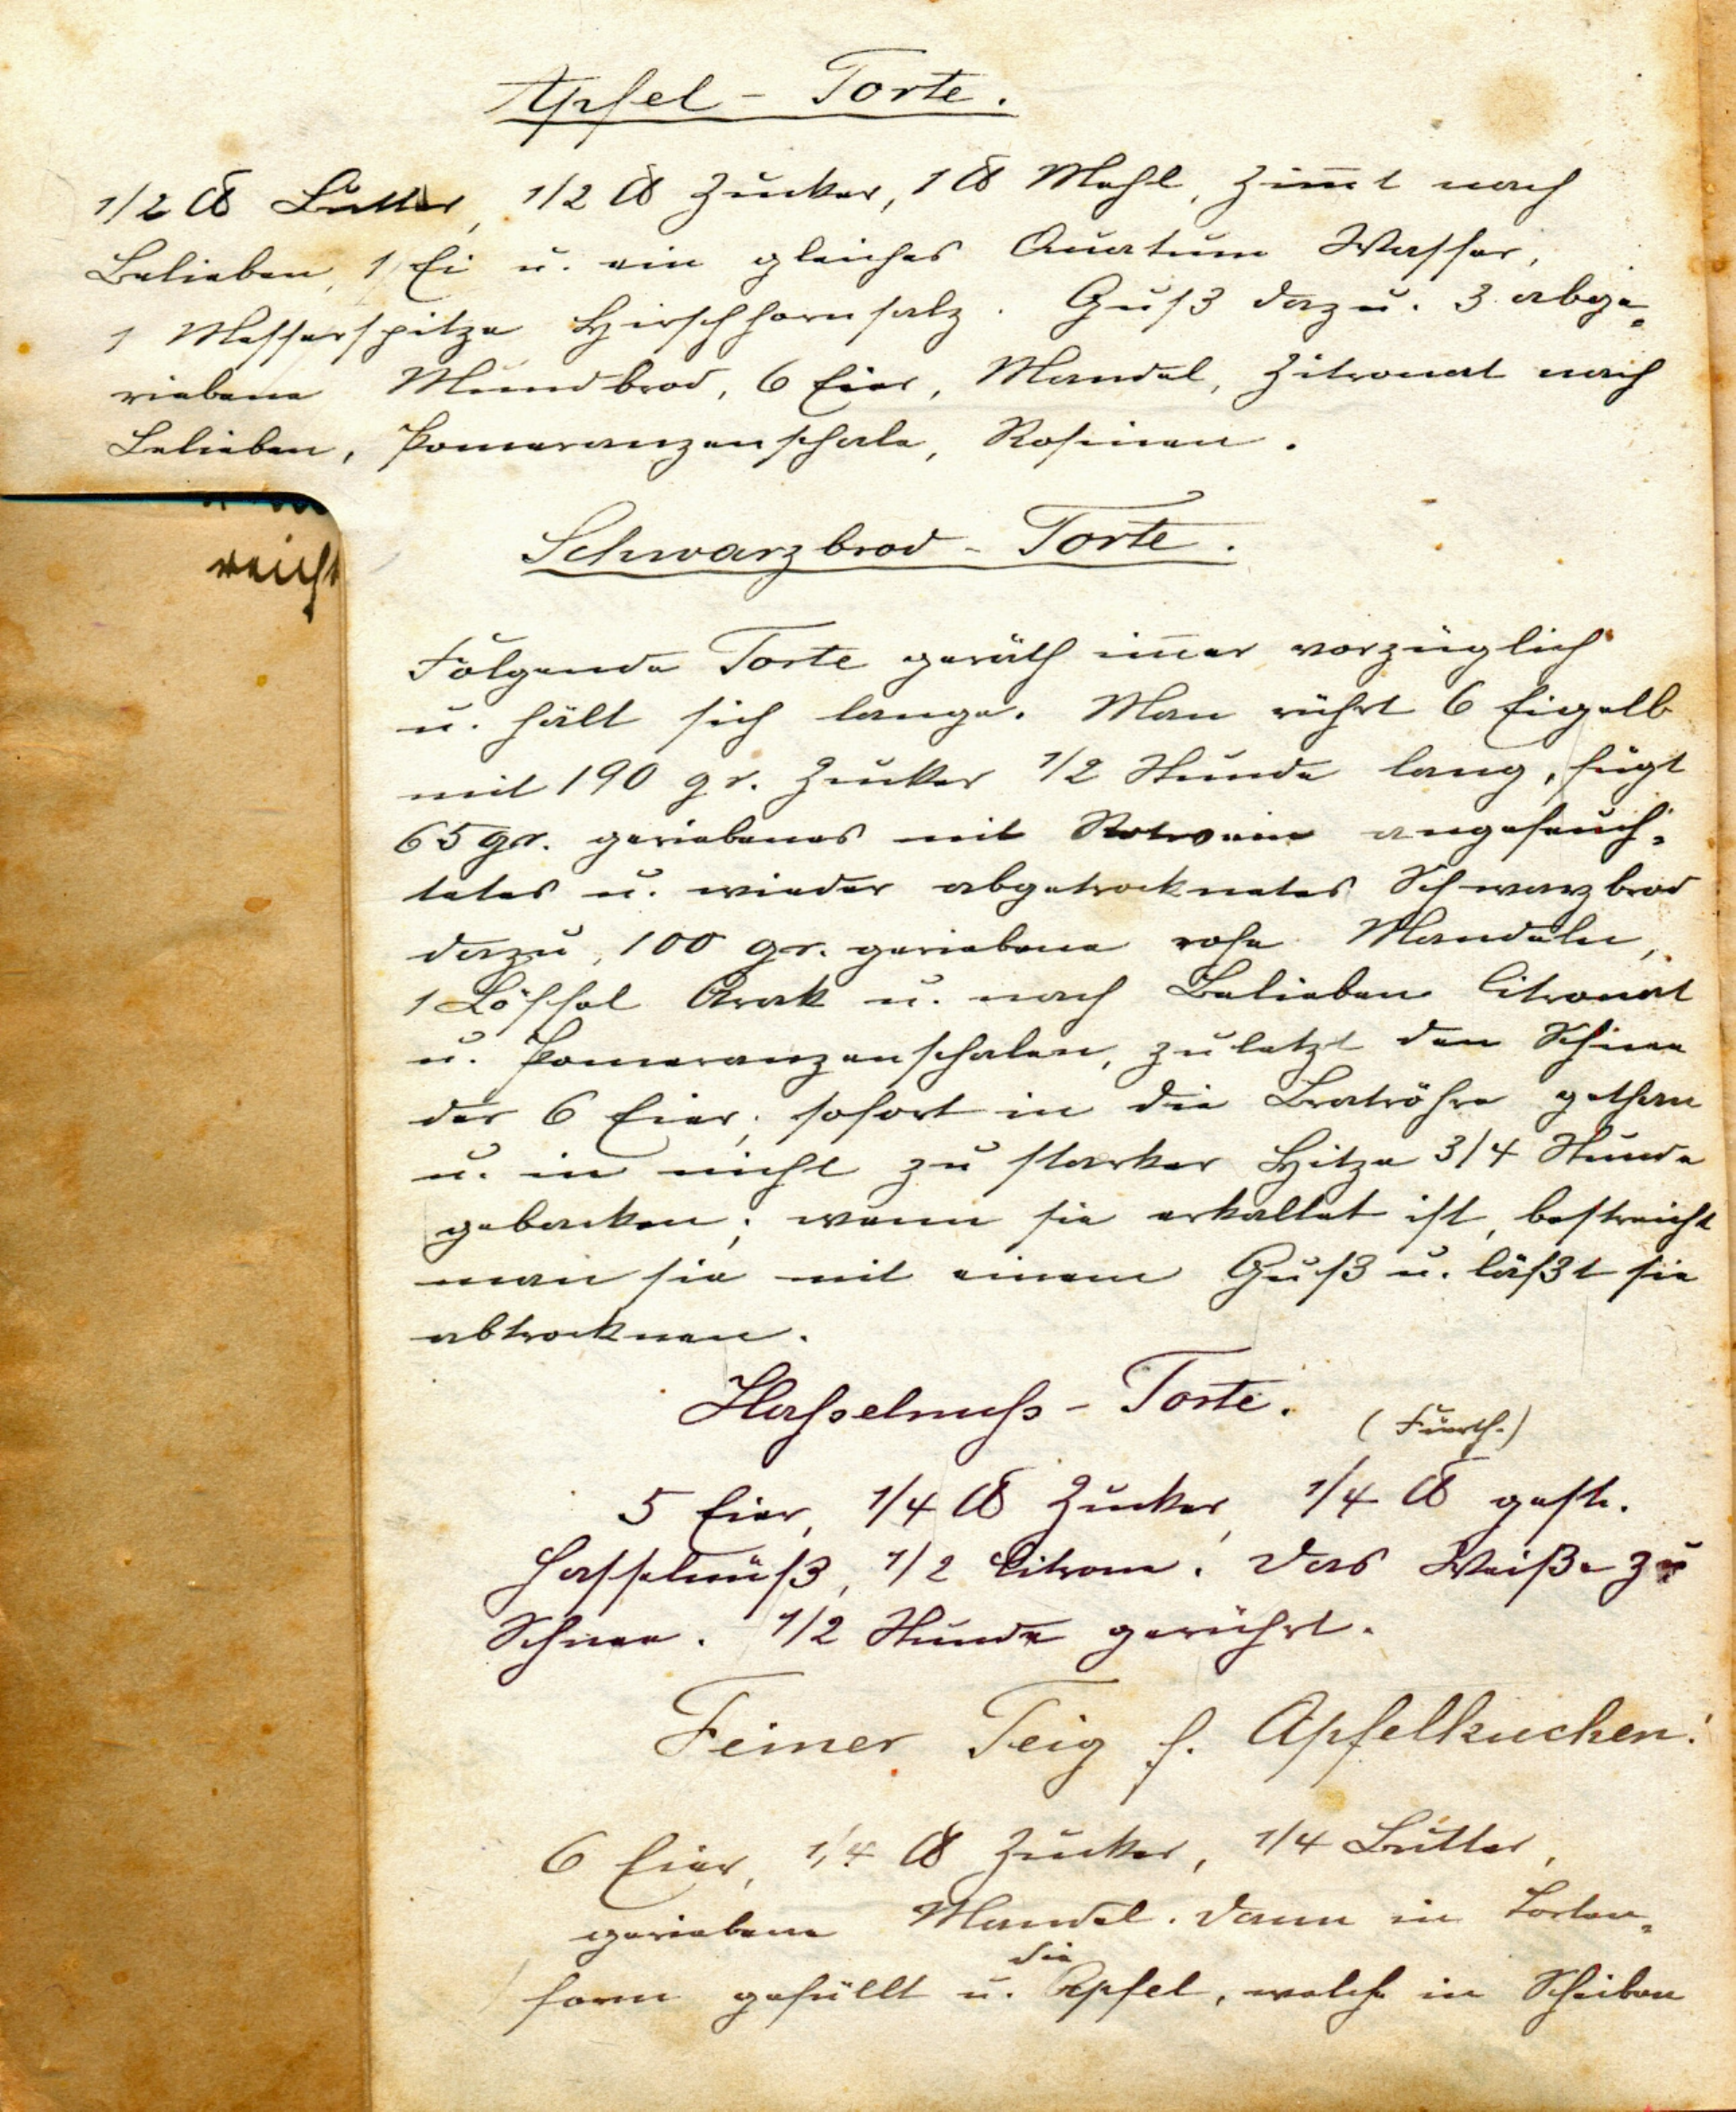 Apfel - Torte.
1/2 ℔ Butter, 1/2 ℔ Zucker, 1 ℔ Mehl, Zim̅t nach
Belieben, 1 Ei u. ein gleiches Quatum Wasser,
1 Messerspitze Hirschhornsalz. Guß dazu. 3 abge-
riebene Mundbrod, 6 Eier, Mandel, Zitronat nach
Belieben, Pomeranzenschale, Rosinen.
Schwarzbrod - Torte.
reicht
Folgende Torte geräth im̅er vorzüglich
u. hält sich lange. Man rührt 6 Eigelb
mit 190 gr. Zucker 1/2 Stunde lang, fügt
65 gr. geriebenes mit Rotwein angefeuch-
tetes u. wieder abgetrocknetes Schwarzbrod
dazu, 100 gr. geriebene rohe Mandeln,
1 Löffel Arak u. nach Belieben Citronat
u. Pomeranzenschalen, zuletzt den Schnee
der 6 Eier; sofort in die Bratröhre gethan
u. in nicht zu starker Hitze 3/4 Stunde
gebacken; wenn sie erkaltet ist, bestreicht
man sie mit einem Guß u. läßt sie
abtrocknen.
Hasselnuss - Torte.
(Fürth.)
5 Eier, 1/4 ℔ Zucker, 1/4 ℔ gest.
Hasselnüß, 1/2 Citrone. Das Weiße zu
Schnee. 1/2 Stunde gerührt.
Feiner Teig f. Apfelkuchen!
6 Eier, 1/4 ℔ Zucker, 1/4 Butter,
geriebene Mandel. Dann in Torten-
die
form gefüllt u. Apfel, welche in Scheiben